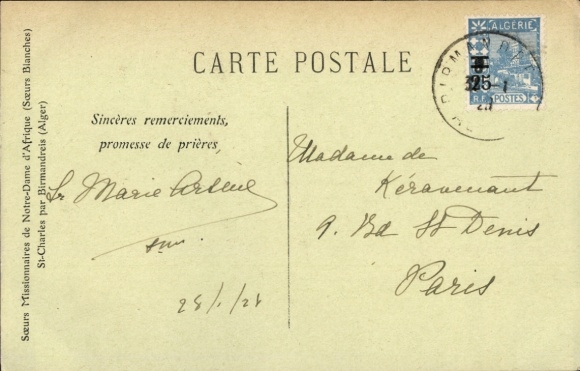 CARTE POSTALE
ALGÉRIE
25
R.F. POSTES
BIRMANDREIS
Sœurs Missionnaires de Notre-Dame d'Afrique (Sœurs Blanches)
St-Charles par Birmandreis (Alger)
Sincères remerciements,
promesse de prières
Sr Marie
28/1/28
Madame de
Kéravenant
9. Bd St Denis
Paris